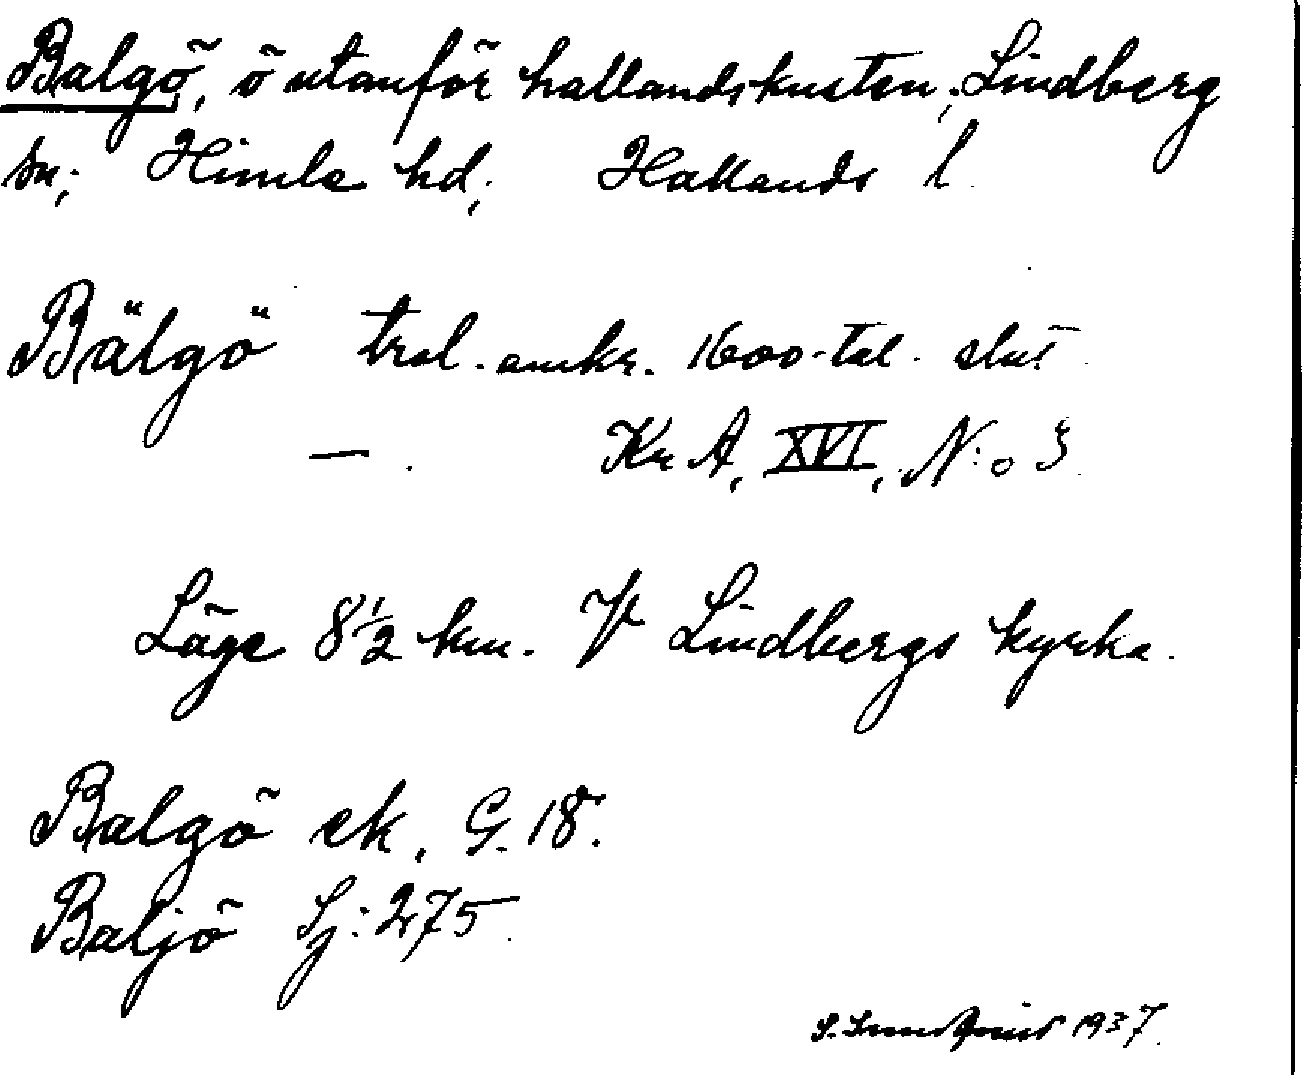 Balgö, ö utanför hallandskusten; Lindberg
sn; Himle hd; Hallands l.
Bälgö trol. omkr. 1600-tal. slut
— . Kr A, XVI, N:o 3
Läge 8 1/2 km. V Lindbergs kyrka.
Balgö ek, G. 18.
Baljö Sj: 275.
S. 1937.